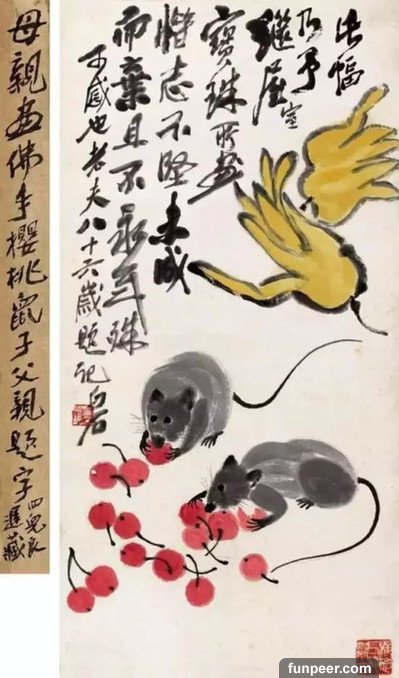 此幅
乃予
繼室
寶珠所畫
惜志不堅未成
而棄且不永年殊
可感也老夫八十六歲題記白石
母親畫佛手櫻桃鼠子父親題字
四兒良
遲藏
funpeer.com